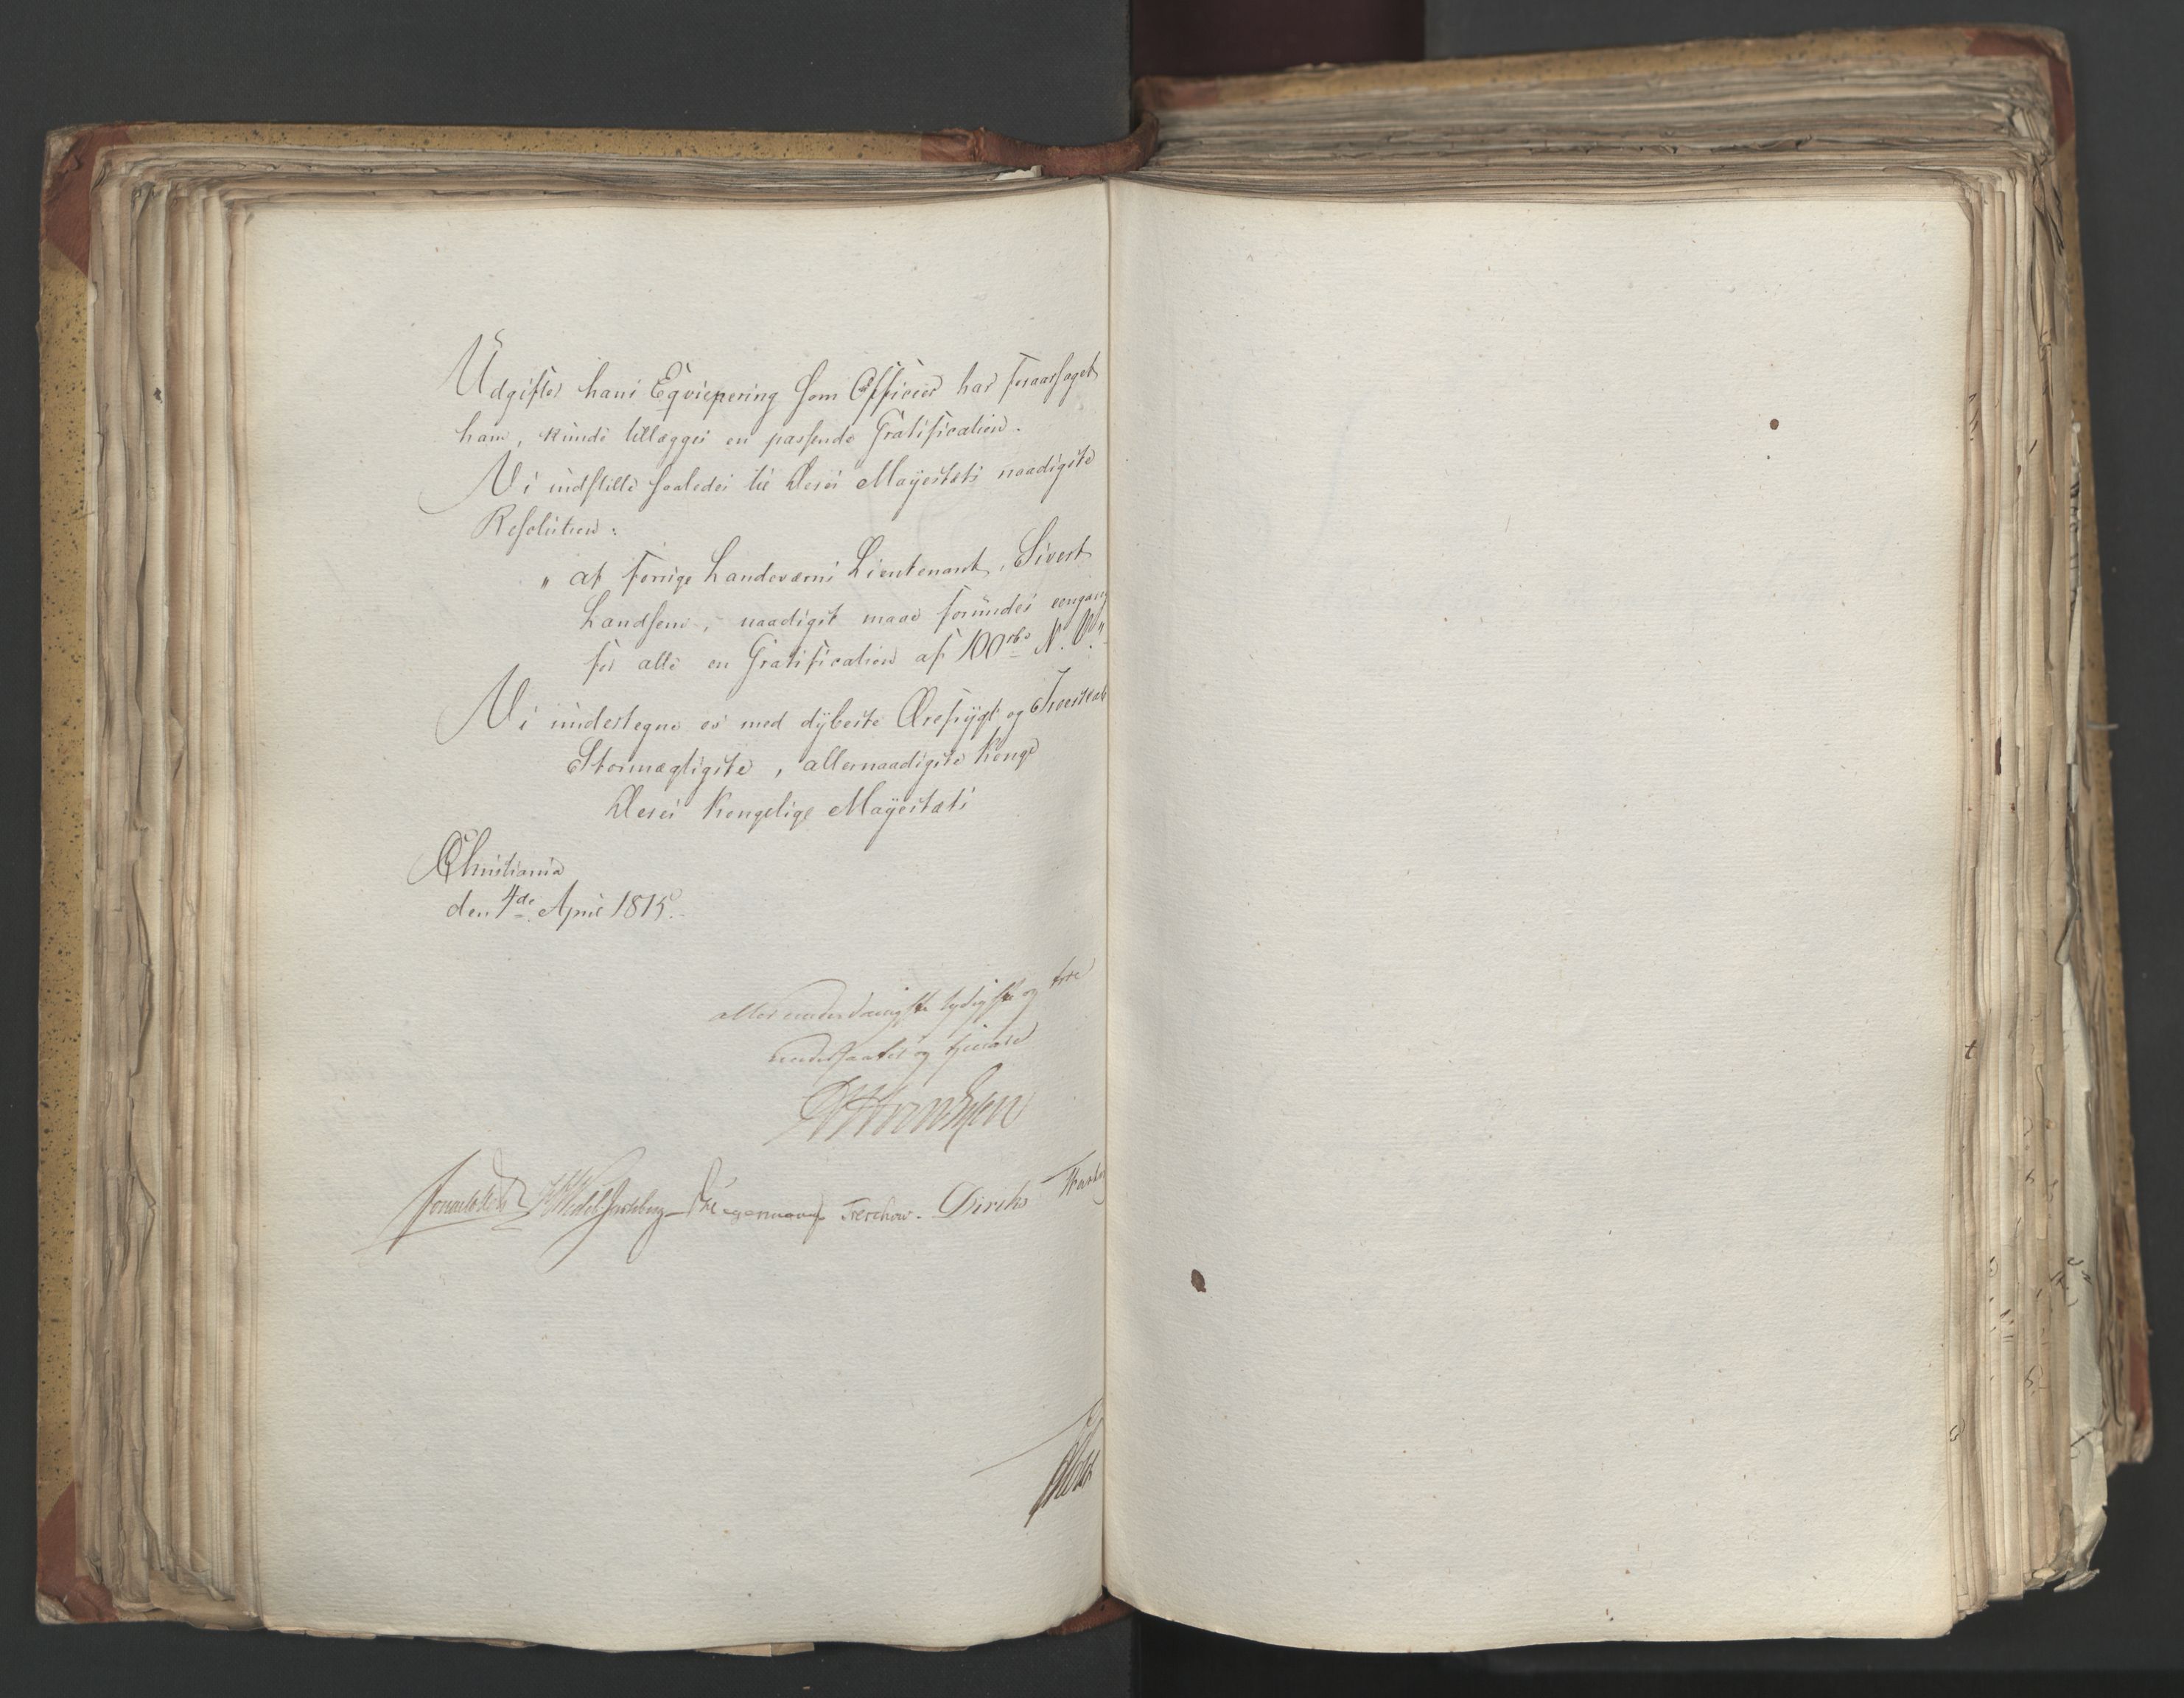 Udgifter hans Eqviepering som Officeer har foraarsaget
ham, kunde tillægges en passende Gratification.
Vi indstille saaledes til Deres Mayestæts naadigste
Resolution:
" at forrige Landeværns Lieutenant, Sivert
Landsem, naadigst maae forundes eengang
for alle en Gratification af 100 rbd N. V."
Vi undertegne os med dybeste Ærefrygt og Troeskab
Stormægtigste, allernaadigste Konge
Deres Kongelige Mayestæts
Christiania
den 4de April 1815.
allerunderdanigste lydigste og troe
undersaatter og tjenere
Sommerhielm Wedel Jarlsberg Diriks
Treschow.
Holst